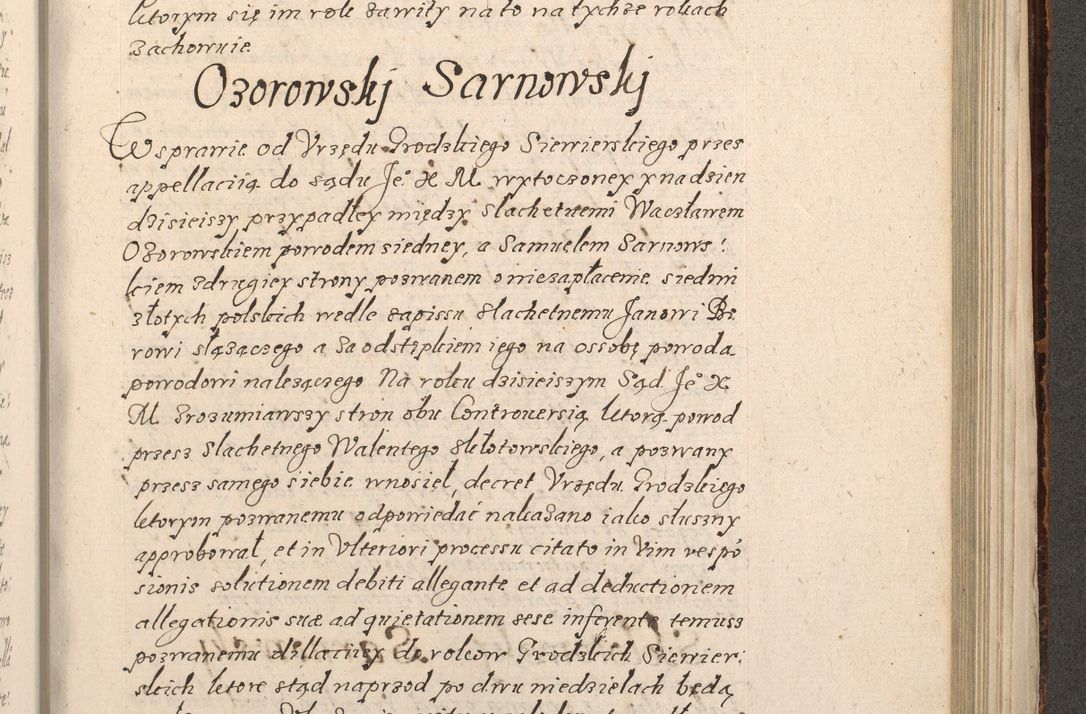 ktorym się im rok zawiły na to na tychze rokach
zachowuie.
Ozorowskij Sarnowskij
W sprawie od Vrzędu Grodzkiego Siewierskiego przes
appellaciią do sądu Je° X M. wytoczoney y na dzien
dzisieiszy przypadłey między slachetnemi Waczławem
Ozorowskiem powodem siedney, a Samuelem Sarnows-
kiem zdrugiey strony pozwanem o niezapłacenie siedmi
złotych polskich wedle zapissu slachetnemu Janowi Be
rowi słązączego a za odstąpkiem iego na ossobę powoda
powodowi nalezączego Na roku dzisieiszym Sąd Je° X
M. zrozumiawszy stron obu Controuersią ktorą powod
przesz slachetnego Walentego a pozwany
przesz samego siebie wnosiel, decret Vrzędu Grodzkiego
ktorym pozwanemu odpowiedać nakazano iako słuszny
approbował, et in Vlteriori processu citato in Vim respō
sionis solutionem debiti allegante et ad deductionem
allegationis suæ ad quietationem sese inferente temusz
pozwanemu dillaciiey do rokow Grodzkich Siewier-
skich ktore stąd naprzod po dwu niedzielach będą